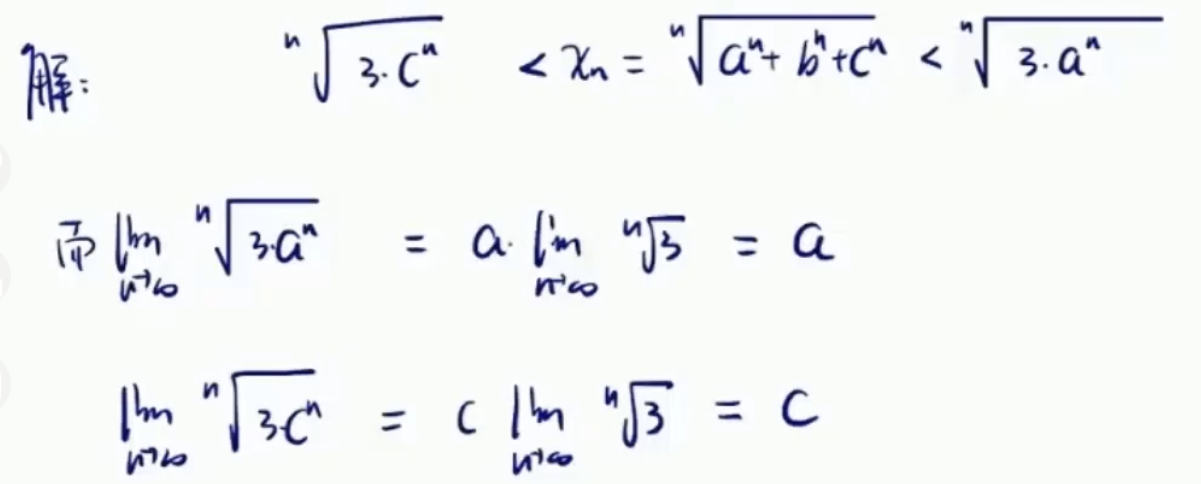 解: ⁿ√(3·cⁿ) < xₙ = ⁿ√(aⁿ+bⁿ+cⁿ) < ⁿ√(3·aⁿ)
而 lim n→∞ ⁿ√(3·aⁿ) = a· lim n→∞ ⁿ√3 = a
lim n→∞ ⁿ√(3·cⁿ) = c lim n→∞ ⁿ√3 = c